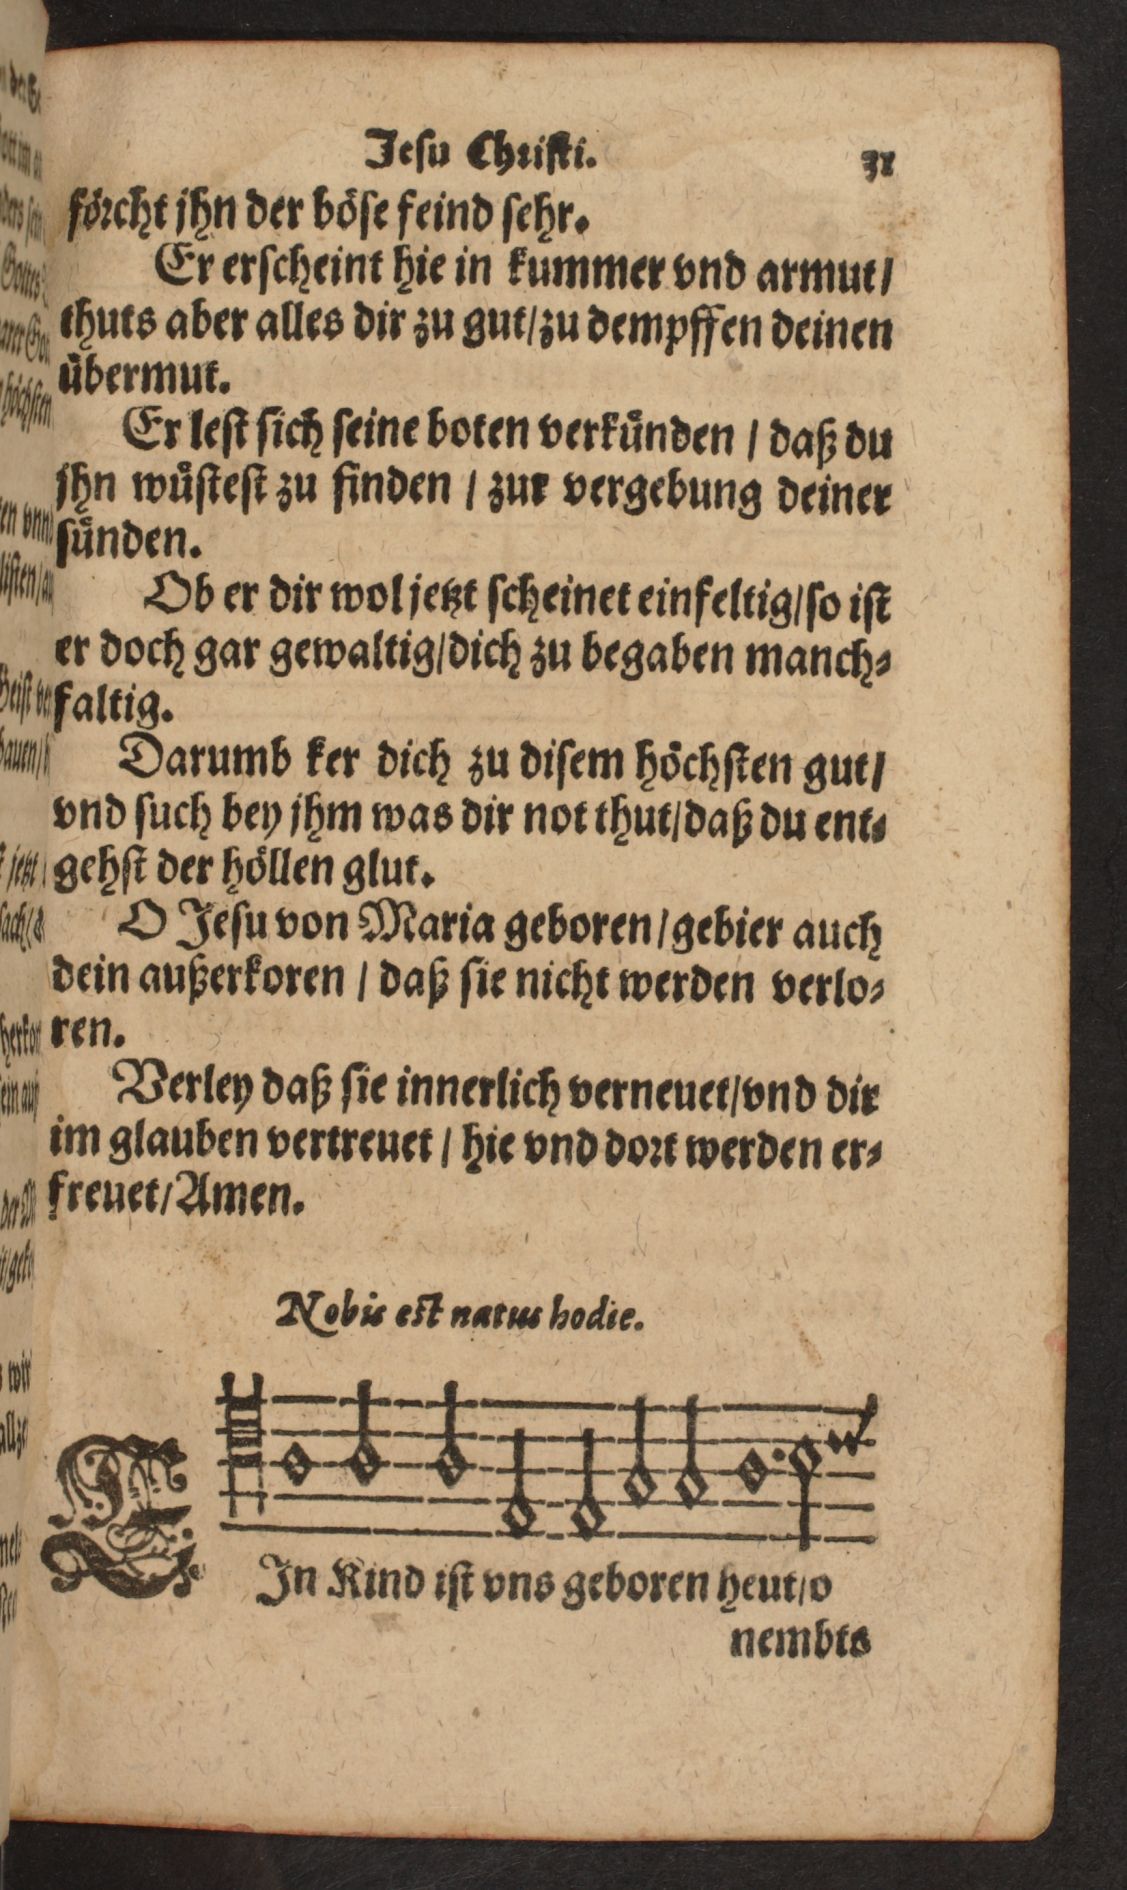 Jesu Christi. 31
förcht jhn der böse feind sehr.
Er erscheint hie in kummer vnd armut/
thuts aber alles dir zu gut/zu dempffen deinen
übermut.
Er lest sich seine boten verkünden / daß du
jhn wüstest zu finden / zur vergebung deiner
sünden.
Ob er dir wol jetzt scheinet einfeltig/so ist
er doch gar gewaltig/dich zu begaben manch-
faltig.
Darumb ker dich zu disem höchsten gut/
vnd such bey jhm was dir not thut/daß du ent-
gehst der höllen glut.
O Jesu von Maria geboren/gebier auch
dein außerkoren / daß sie nicht werden verlo-
ren.
Verley daß sie innerlich verneuet/vnd dir
im glauben vertreuet / hie vnd dort werden er-
freuet/Amen.
Nobis est natus hodie.
EJn Kind ist vns geboren heut/o
nembts